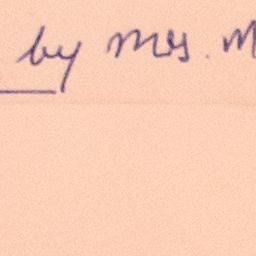 by Mrs. M